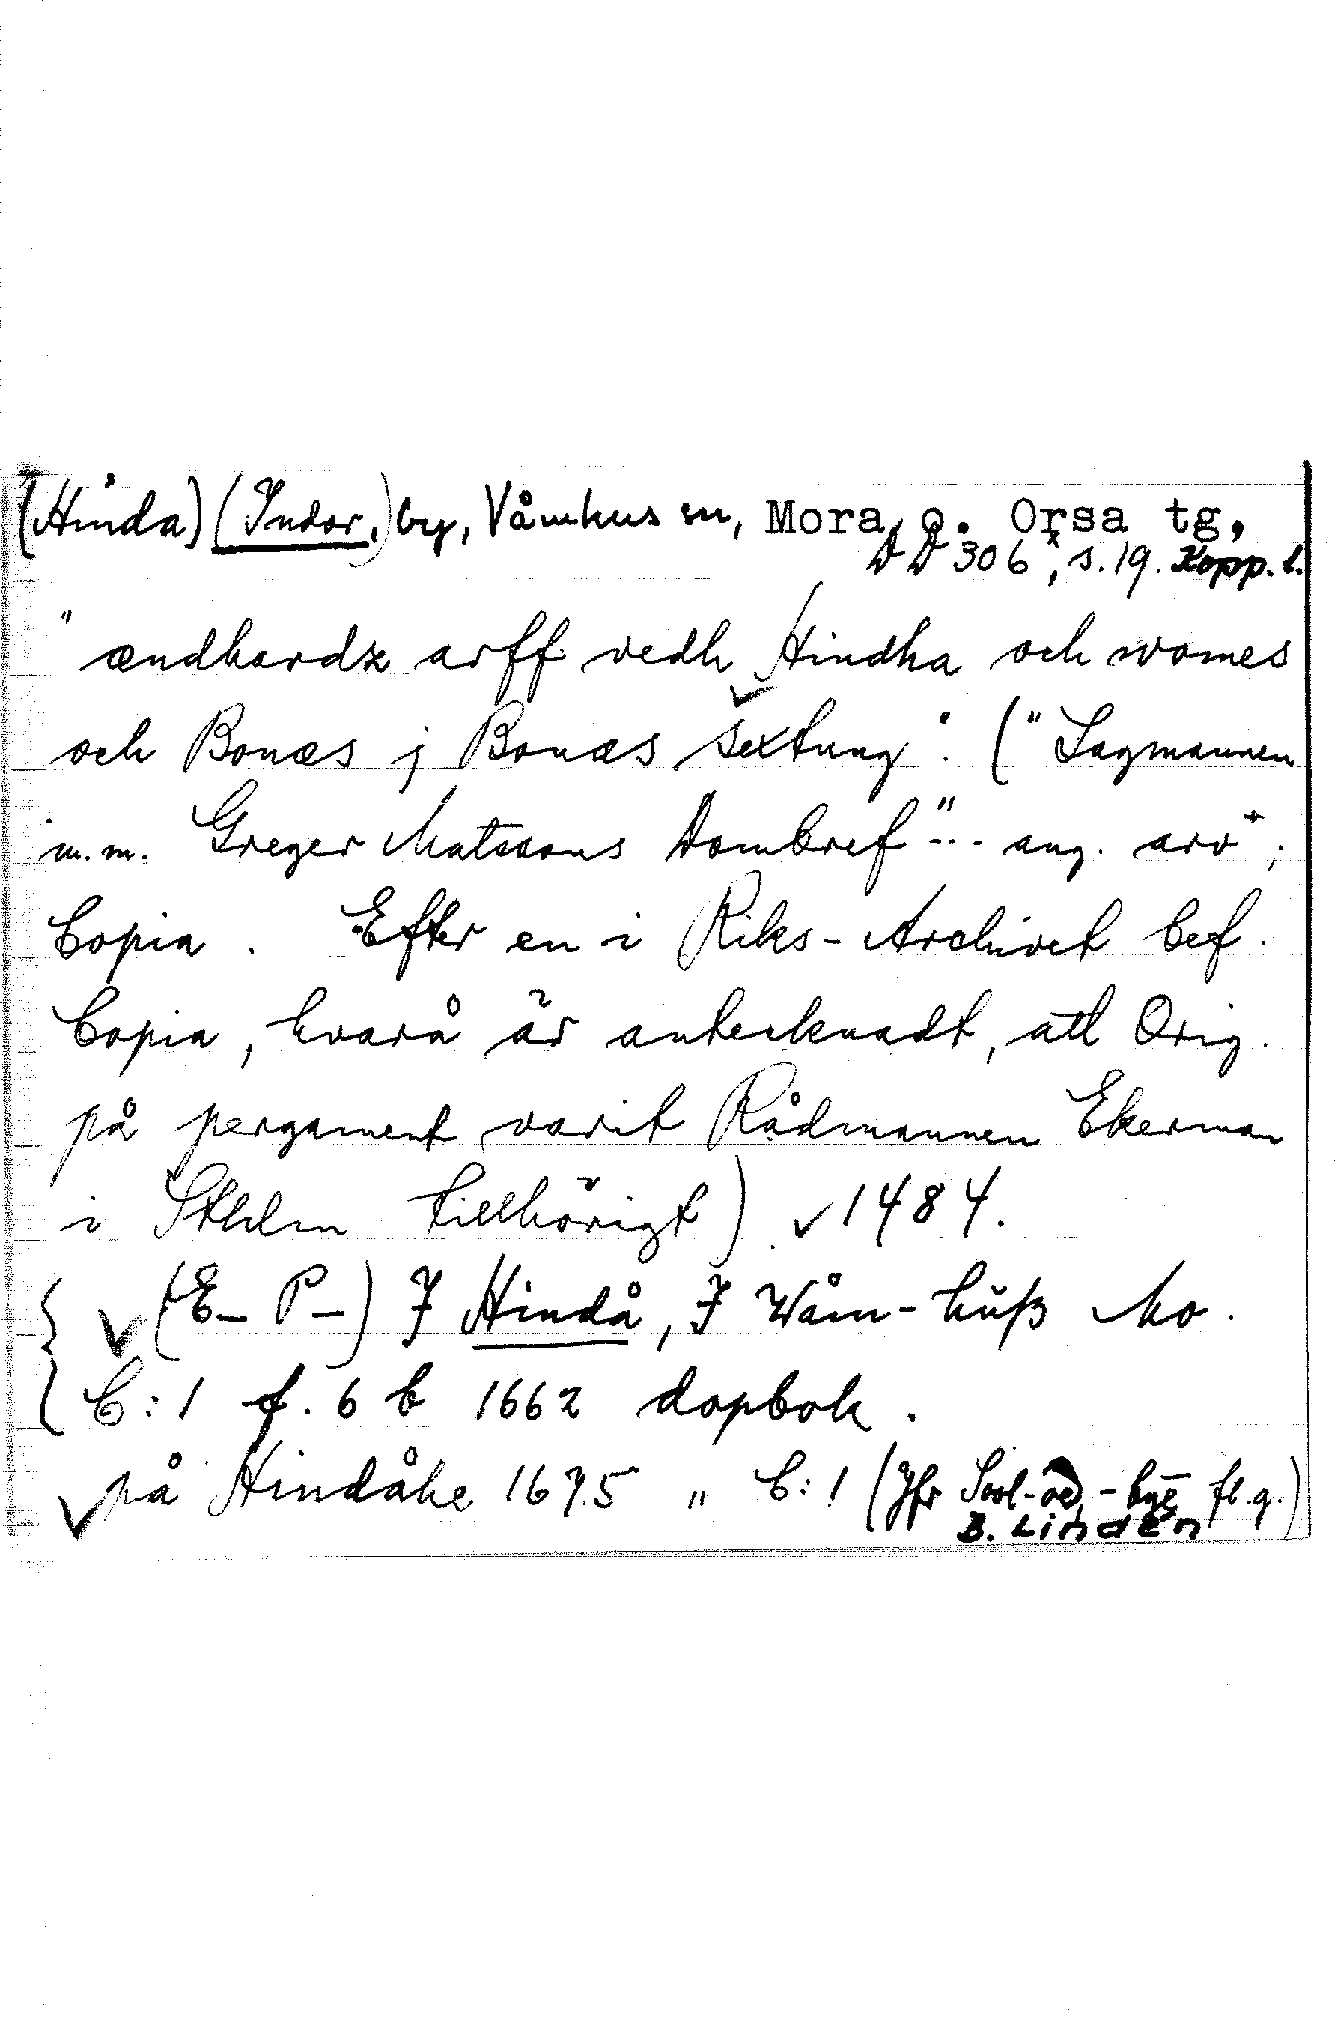 (Hinda) (Indor,) by, Våmhus sn, Mora o. Orsa tg,
DD 306, s. 19. Kopp. l.
"ændhardz arff vedh Hindha och womes
och Bonæs j Bonæs sextung". ("Lagmannen
m.m. Greger Matssons Dombref"... ang. arv";
Copia. Efter en i Riks-Archivet bef.
Copia, hvarå är antecknadt, att Orig.
på pergament varit Rådmannen Ekerman
i Sthlm tillhörigt) ✓ 1484.
✓ (E– P–) J Hindå, J Wåm-hůß Mo.
C:1 f. 6 b 1662 dopbok.
✓ på Hindåhe 1675 " C:1 (Jfr fl.g.)
B. Lindén